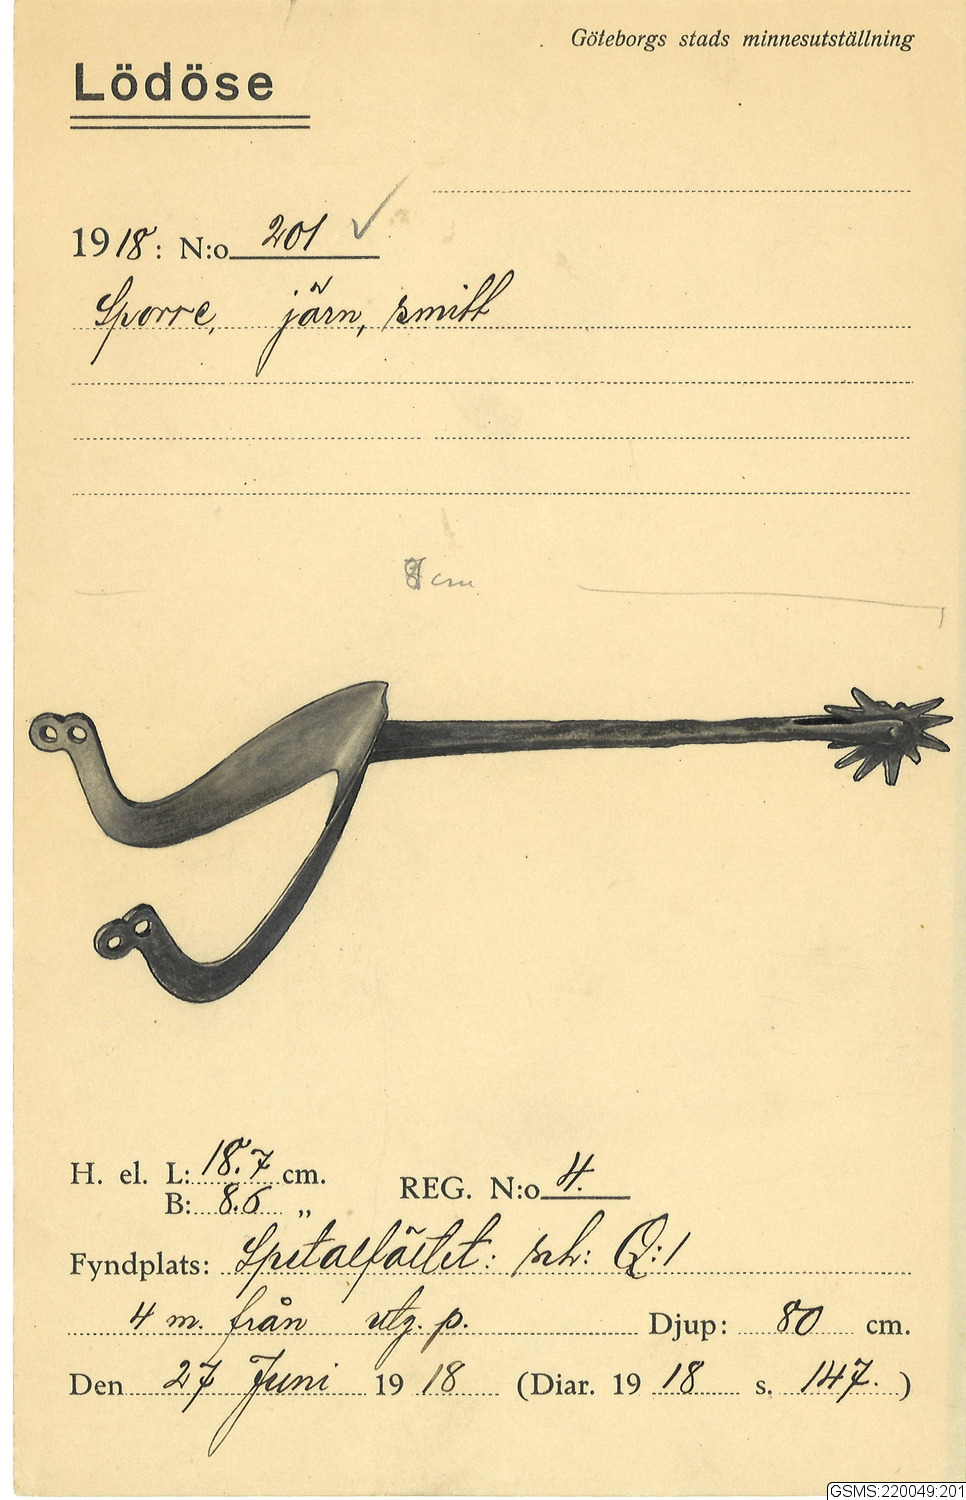 Göteborgs stads minnesutställning
Lödöse
1918: N:o 201 ✓
Sporre, järn, smitt
8 cm
H. el. L: 18.7 cm.
B: 8.6 „
REG. N:o 4.
Fyndplats: Spetalfältet: sch: Q:1
4 m. från utg. p. Djup: 80 cm.
Den 27 Juni 1918 (Diar. 1918 s. 147.)
GSMS:220049:201